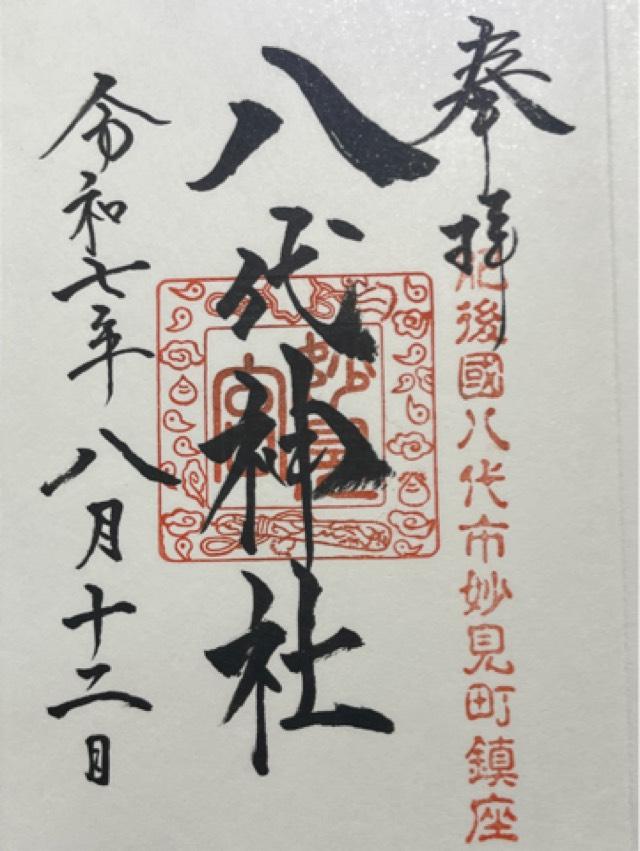 奉拝
肥後國八代市妙見町鎮座
八代神社
妙見宮
令和七年八月十二日